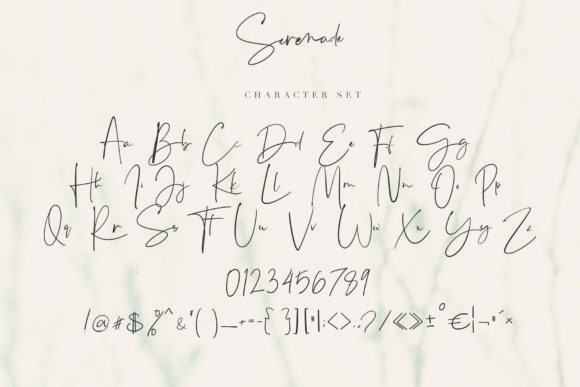 Serenade
CHARACTER SET
Aa Bb Cc Dd Ee Ff Gg
Hh Ii Jj Kk Ll Mm Nn Oo Pp
Qq Rr Ss Tt Uu Vv Ww Xx Yy Zz
0123456789
!@#$%^&*()_+=-{}][":<>.,?/«»±°€¦¬"´×